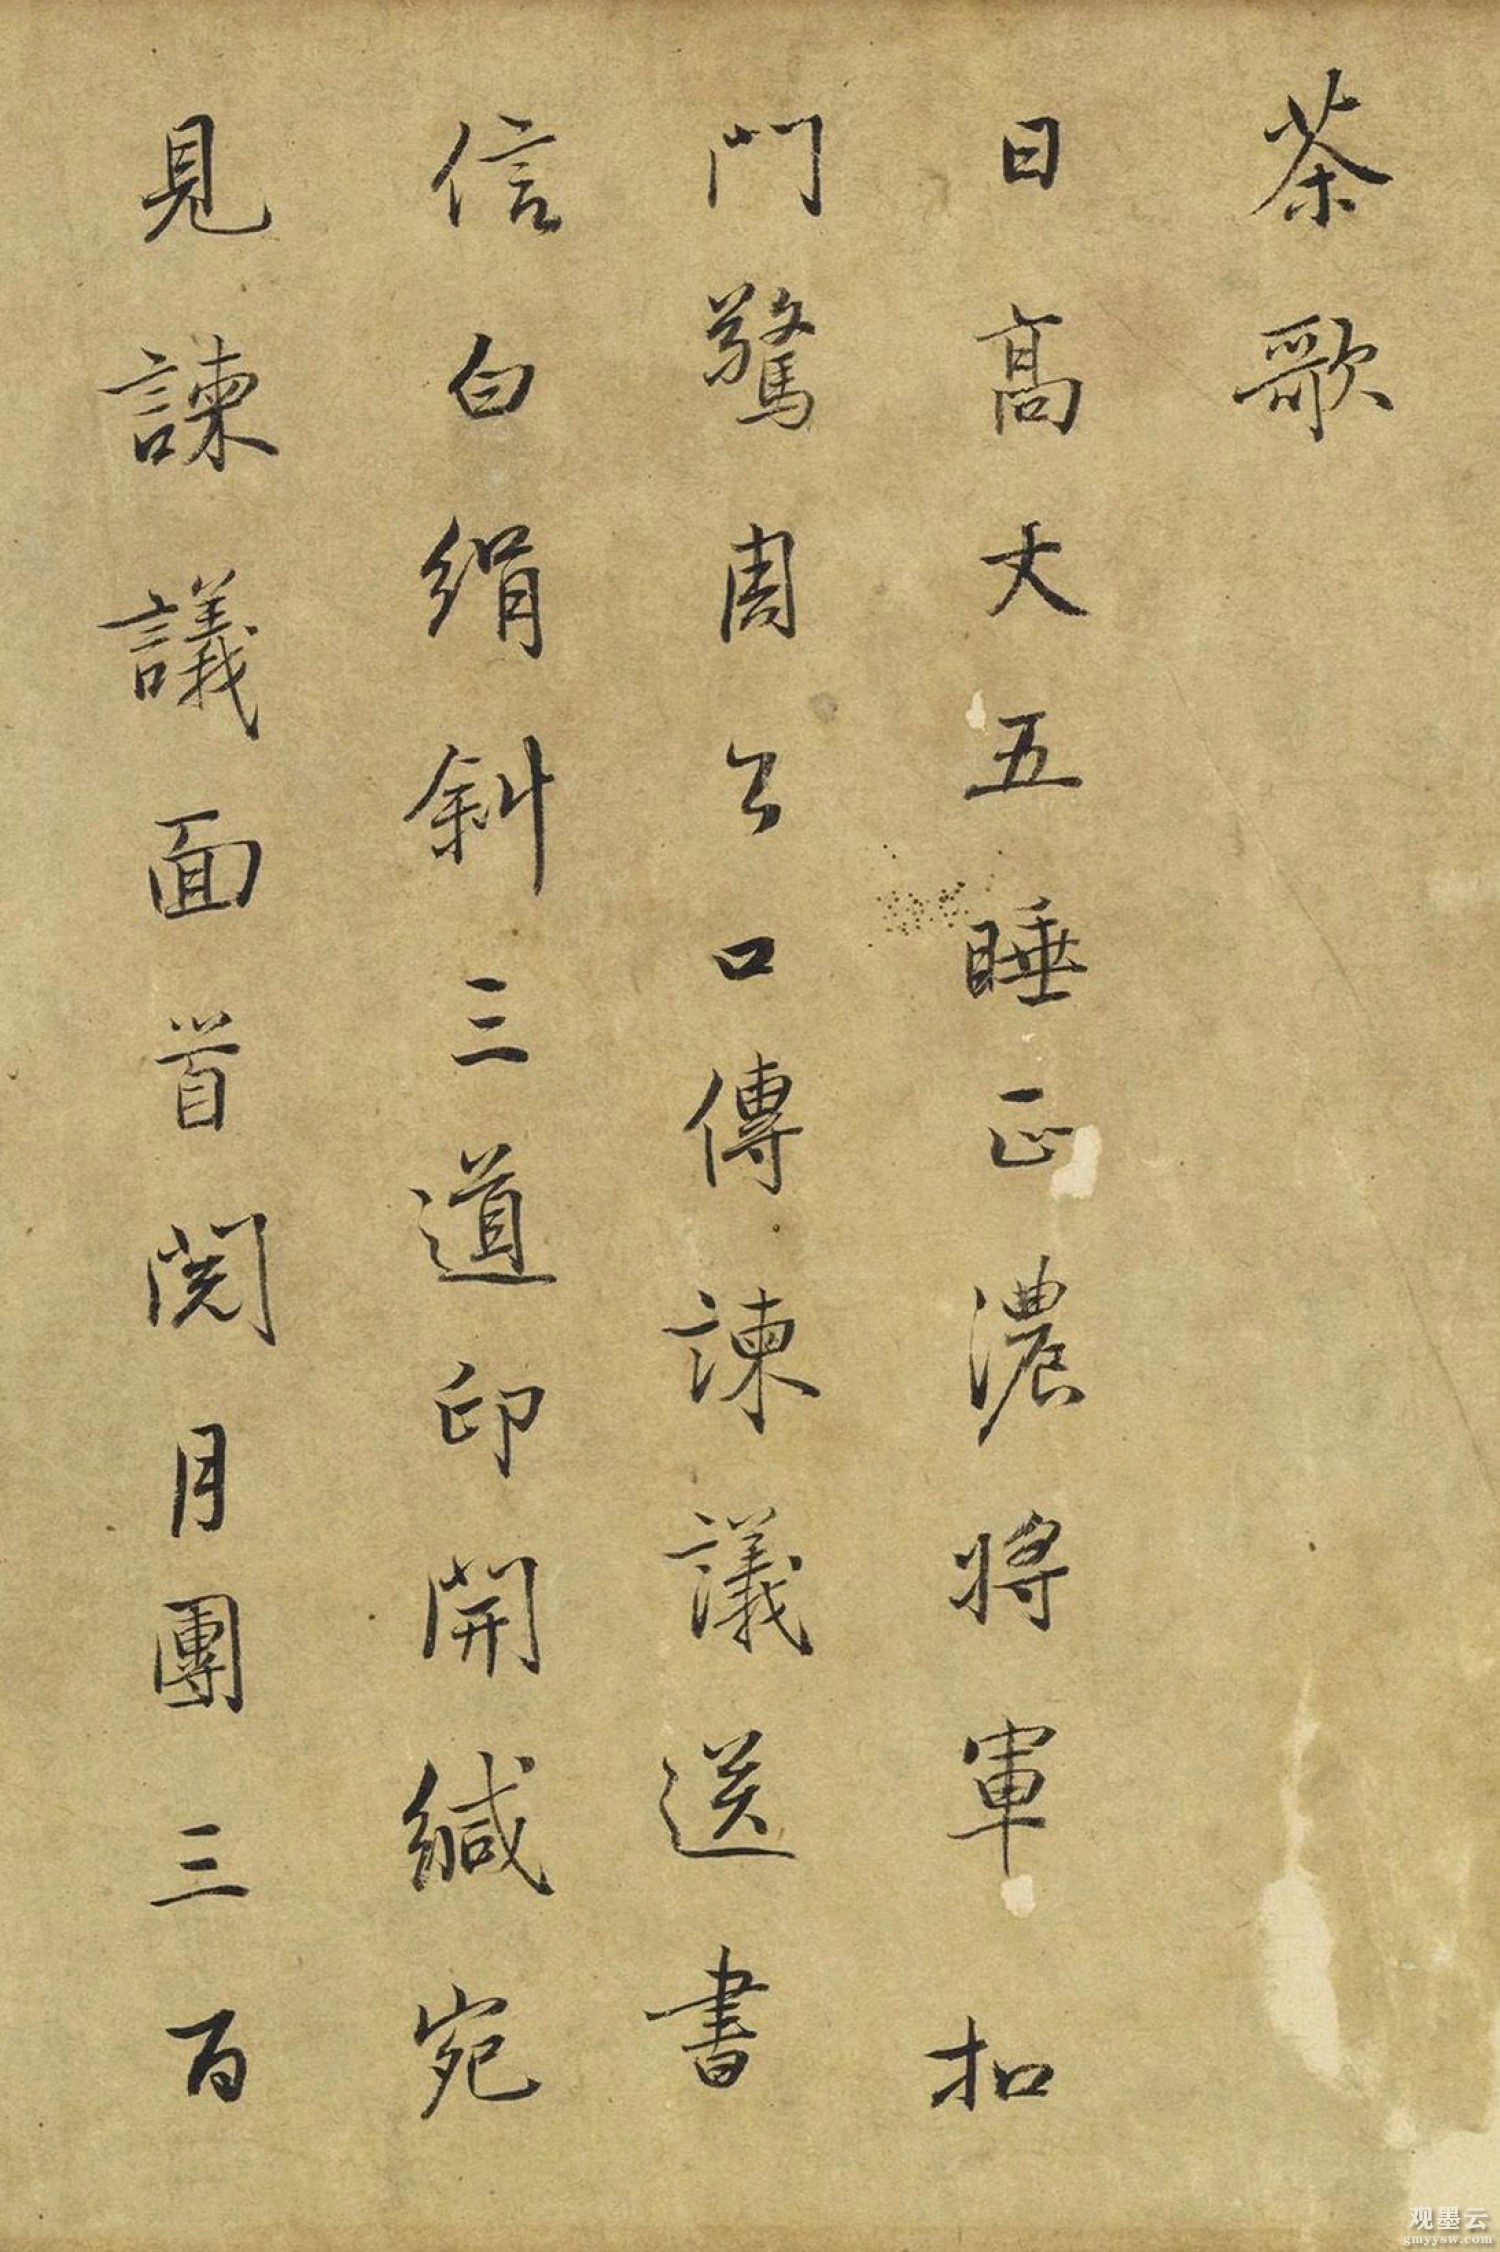 茶歌
日高丈五睡正濃將軍扣
門驚周公口傳諫議送書
信白絹斜三道印開緘宛
見諫議面首閱月團三百
观墨云
gmyysw.com